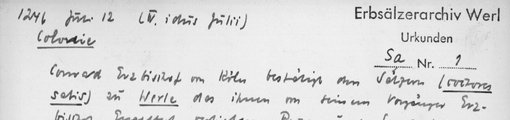 1246 Juli 12 (IV. idus Julii)
Erbsälzerarchiv Werl
Colonie
Urkunden
Sa Nr. 1
Conrad Erzbischof von Köln bestätigt den Sälzern (coctores
salis) zu Werle das ihnen von seinem Vorgänger Erz-